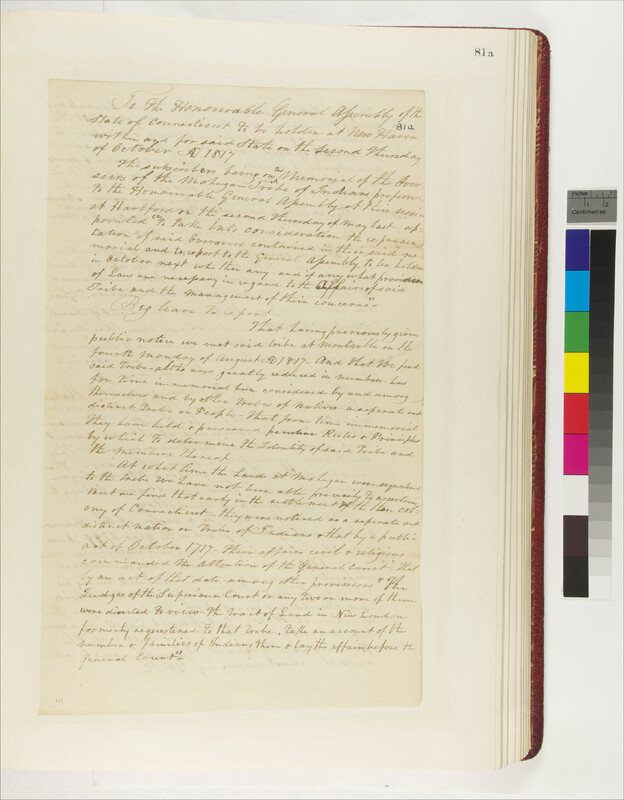 81a
To the Honourable General Assembly of the
State of Connecticut to be holden at New Haven
81a
within and for said State on the second Thursday
of October AD 1817
The subscribers being on a Memorial of the Over
seers of the Mohegan Tribe of Indians preferred
to the Honourable General Assembly at their session
at Hartford on the second Thursday of May last ap
pointed "to take into consideration the represen
tation of said Overseers contained in their said me
morial and to report to the General Assembly to be holden
in October next whether any and if any what provisions
of Law are necessary in regard to the Affairs of said
Tribe and the management of their concerns"
Beg leave to report
That having previously given
public notice we met said tribe at Montville on the
fourth Monday of August AD 1817. And that We find
said Tribe altho now greatly reduced in number has
for time immemorial been considered by and among
themselves and by other Tribes of natives a seperate and
distinct Tribe or People - That from time immemorial
they have held & preserved peculiar Rules & Principles
by which to determine the Identity of said Tribe and
the members thereof
At what time the Lands at Mohegan were sequestered
to the tribe we have not been able precisely to ascertain,
But we find that early in the settlement of the then col-
ony of Connecticut they were noticed as a separate and
distinct nation or Tribe of Indians & that by a public
act of October 1717 their affairs civil & religious
commanded the attention of the General Court - That
by an act of that date among other provisions "The
Judges of the Superiour Court or any two or more of them
were directed to view the tract of Land in New London
formerly sequestered to that tribe, take an account of the
number & families of Indians there & lay the affair before the
General Court"